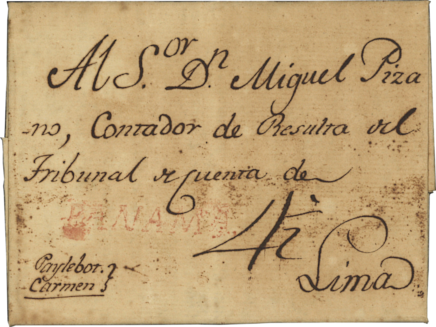 Al S.or D.n Miguel Piza
no, Contador de Resulta del
Tribunal de Cuenta de
PANAMA.
4½
Lima
Carmen